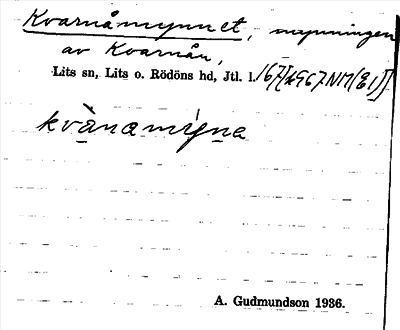 Kvarnåmynnet, mynningen
av Kvarnån,
Lits sn, Lits o. Rödöns hd, Jtl. l.
kvànamýna
A. Gudmundson 1936.